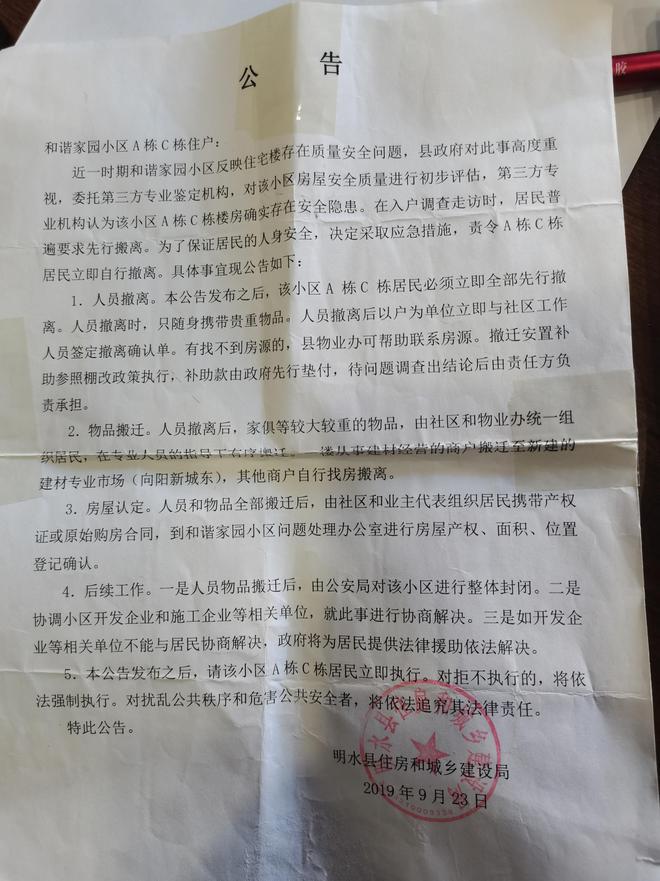 公 告
胶
和谐家园小区A栋C栋住户：
近一时期和谐家园小区反映住宅楼存在质量安全问题，县政府对此事高度重
视，委托第三方专业鉴定机构，对该小区房屋安全质量进行初步评估，第三方专
业机构认为该小区A栋C栋楼房确实存在安全隐患。在入户调查走访时，居民普
遍要求先行搬离。为了保证居民的人身安全，决定采取应急措施，责令A栋C栋
居民立即自行撤离。具体事宜现公告如下：
1．人员撤离。本公告发布之后，该小区A 栋C 栋居民必须立即全部先行撤
离。人员撤离时，只随身携带贵重物品。人员撤离后以户为单位立即与社区工作
人员签定撤离确认单。有找不到房源的，县物业办可帮助联系房源。撤迁安置补
助参照棚改政策执行，补助款由政府先行垫付，待问题调查出结论后由责任方负
责承担。
2．物品搬迁。人员撤离后，家俱等较大较重的物品，由社区和物业办统一组
织居民，在专业人员的指导下有序搬迁。一楼从事建材经营的商户搬迁至新建的
建材专业市场（向阳新城东），其他商户自行找房搬离。
3．房屋认定。人员和物品全部搬迁后，由社区和业主代表组织居民携带产权
证或原始购房合同，到和谐家园小区问题处理办公室进行房屋产权、面积、位置
登记确认。
4．后续工作。一是人员物品搬迁后，由公安局对该小区进行整体封闭。二是
协调小区开发企业和施工企业等相关单位，就此事进行协商解决。三是如开发企
业等相关单位不能与居民协商解决，政府将为居民提供法律援助依法解决。
5．本公告发布之后，请该小区A栋C栋居民立即执行。对拒不执行的，将依
法强制执行。对扰乱公共秩序和危害公共安全者，将依法追究其法律责任。
特此公告。
明水县住房和城乡建设局
2019年9月23日
明水县住房和城乡建设局